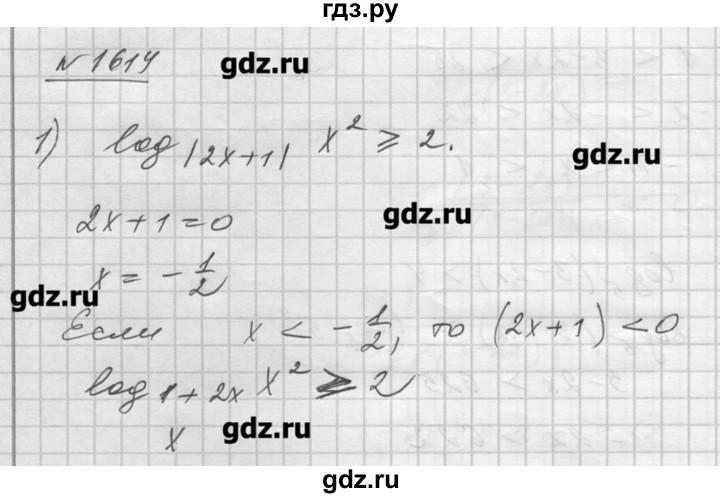 гдз.ру
N 1614
gdz.ru
1) log |2x+1| x² ⩾ 2.
gdz.ru
gdz.ru
2x+1=0
x = -1/2
gdz.ru
Если x < -1/2, то (2x+1) <0
log 1+2x x² ⩾ 2
x
gdz.ru
gdz.ru